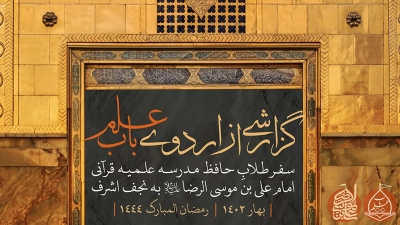 گزارشی از اردوی باب علم
سفر طلاب حافظ مدرسه علمیه قرآنی
امام علی بن موسی الرضا علیه‌السلام به نجف اشرف
| بهار ۱۴۰۲ | رمضان المبارک ۱۴۴۴ |